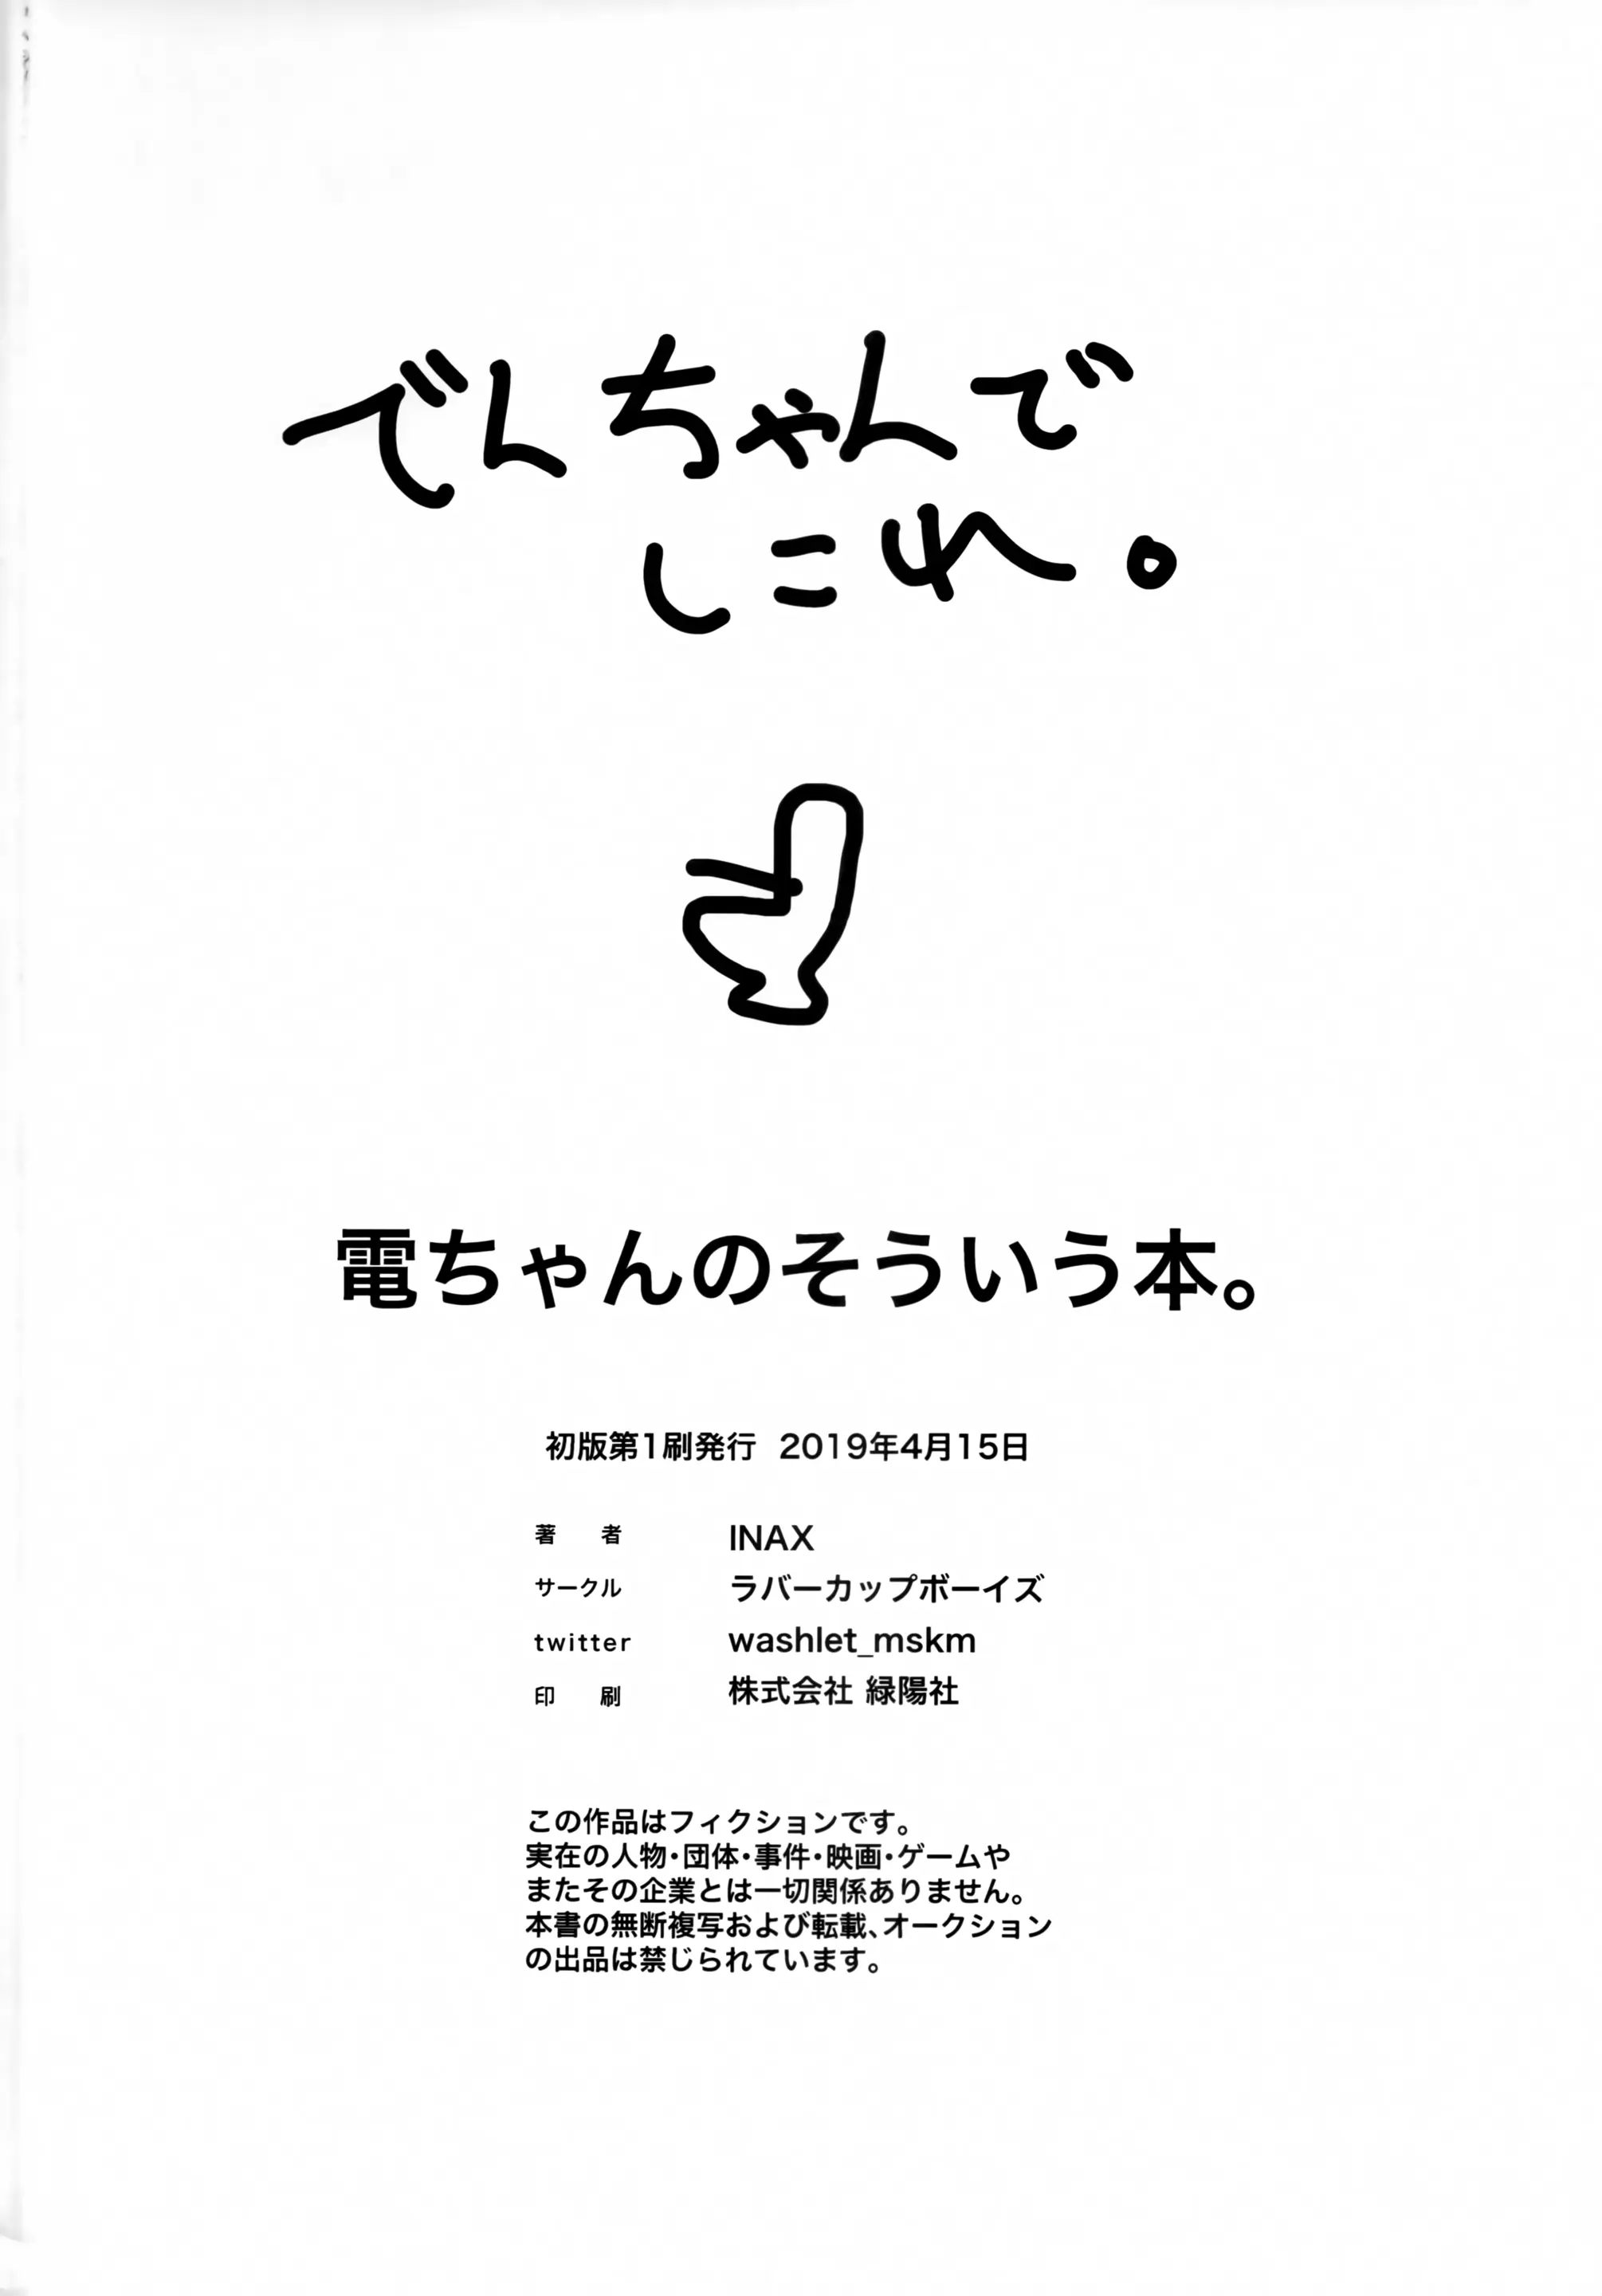 でんちゃんで
しこれ。
電ちゃんのそういう本。
初版第1刷発行 2019年4月15日
著 者 INAX
サークル ラバーカップボーイズ
twitter washlet_mskm
印 刷 株式会社 緑陽社
この作品はフィクションです。
実在の人物・団体・事件・映画・ゲームや
またその企業とは一切関係ありません。
本書の無断複写および転載、オークション
の出品は禁じられています。